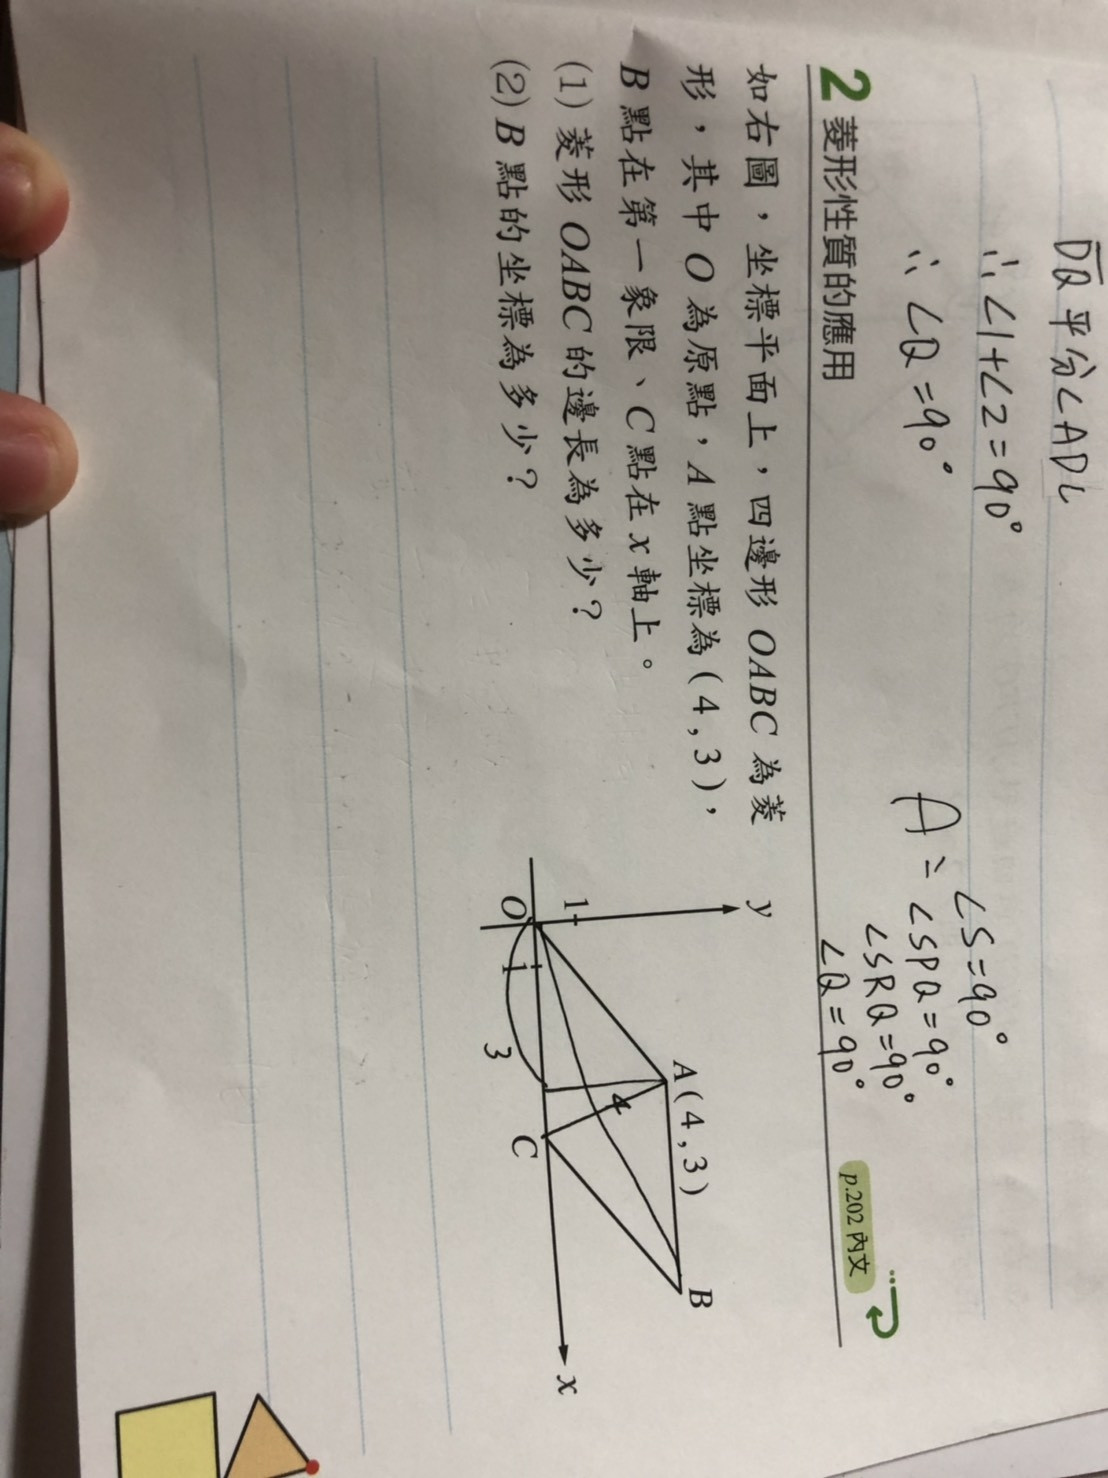 DQ平分∠ADC
∴∠1+∠2=90°
∴∠Q=90°
∠S=90°
A：∠SPQ=90°
∠SRQ=90°
∠Q=90°
2 菱形性質的應用
p.202 內文
如右圖，坐標平面上，四邊形 OABC 為菱
形，其中 O 為原點，A 點坐標為(4,3)，
B 點在第一象限、C 點在 x 軸上。
(1) 菱形 OABC 的邊長為多少？
(2) B 點的坐標為多少？
y
A(4,3)
B
4
1
O
1
3
C
x